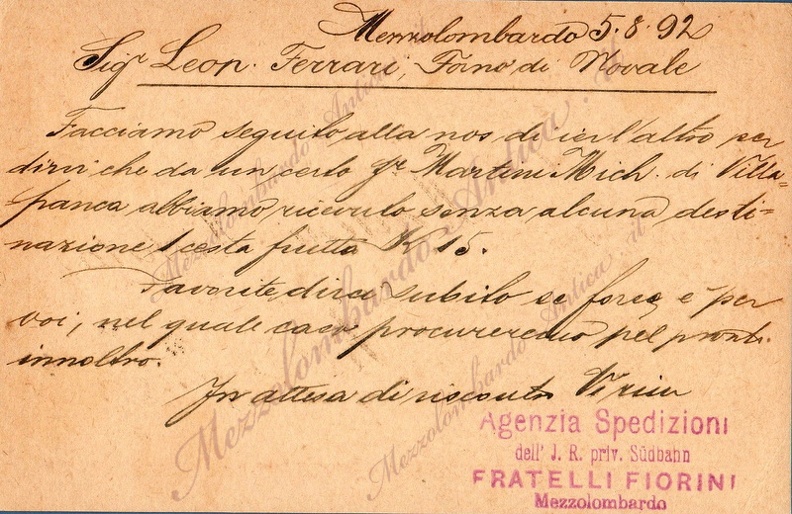 Mezzolombardo 5.8.92
Sigr Leon. Ferrari, Forno di Novale
Facciamo seguito alla nos di ier l'altro per
dirvi che da un certo Martini Mich. di Villa-
franca abbiamo ricevuto senza alcuna desti-
nazione 1 cesta frutta K 15.
Favorite dirci subito se forse è per
voi, nel quale caso procureremo pel pronto
innoltro.
In attesa di riscontro
Agenzia Spedizioni
dell' J. R. priv. Südbahn
FRATELLI FIORINI
Mezzolombardo
Mezzolombardo Antica
Mezzolombardo Antica .it
Mezzolombardo Antica .it